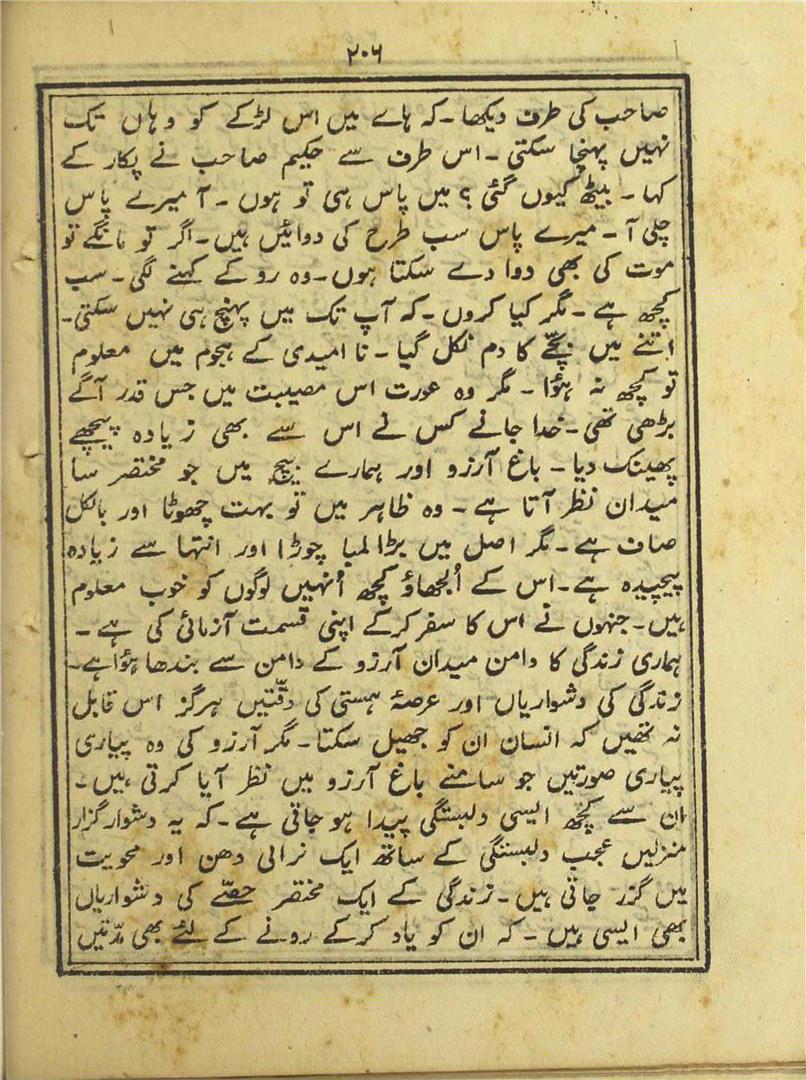 ۲۰۶
صاحب کی طرف دیکھا۔ کہ ہاے میں اس لڑکے کو وہاں تک
نہیں پہنچا سکتی۔ اس طرف سے حکیم صاحب نے پکار کے
کہا۔ بیٹھ کیوں گئی؟ میں پاس ہی تو ہوں۔ آ میرے پاس
چلی آ۔ میرے پاس سب طرح کی دوائیں ہیں۔ اگر تو مانگے تو
موت کی بھی دوا دے سکتا ہوں۔ وہ رو کے کہنے لگی۔ سب
کچھ ہے۔ مگر کیا کروں۔ کہ آپ تک میں پہنچ ہی نہیں سکتی۔
اتنے میں بچّے کا دم نکل گیا۔ نا امیدی کے ہجوم میں معلوم
تو کچھ نہ ہؤا۔ مگر وہ عورت اس مصیبت میں جس قدر آگے
بڑھی تھی۔ خدا جانے کس نے اس سے بھی زیادہ پیچھے
پھینک دیا۔ باغ آرزو اور ہمارے بیچ میں جو مختصر سا
میدان نظر آتا ہے۔ وہ ظاہر میں تو بہت چھوٹا اور بالکل
صاف ہے۔ مگر اصل میں بڑا لمبا چوڑا اور انتہا سے زیادہ
پیچیدہ ہے۔ اس کے اُلجھاؤ کچھ اُنہیں لوگوں کو خوب معلوم
ہیں۔ جنہوں نے اس کا سفر کرکے اپنی قسمت آزمائی کی ہے۔
ہماری زندگی کا دامن میدان آرزو کے دامن سے بندھا ہؤا ہے۔
زندگی کی دشواریاں اور عرصۂ ہستی کی دقّتیں ہرگز اس قابل
نہ تھیں کہ انسان ان کو جھیل سکتا۔ مگر آرزو کی وہ پیاری
پیاری صورتیں جو سامنے باغ آرزو میں نظر آیا کرتی ہیں۔
ان سے کچھ ایسی دلبستگی پیدا ہو جاتی ہے۔ کہ یہ دشوار گزار
منزلیں عجب دلبستگی کے ساتھ ایک نرالی دھن اور محویت
میں گزر جاتی ہیں۔ زندگی کے ایک مختصر حصّے کی دشواریاں
بھی ایسی ہیں۔ کہ ان کو یاد کرکے رونے کے لئے بھی مدّتیں